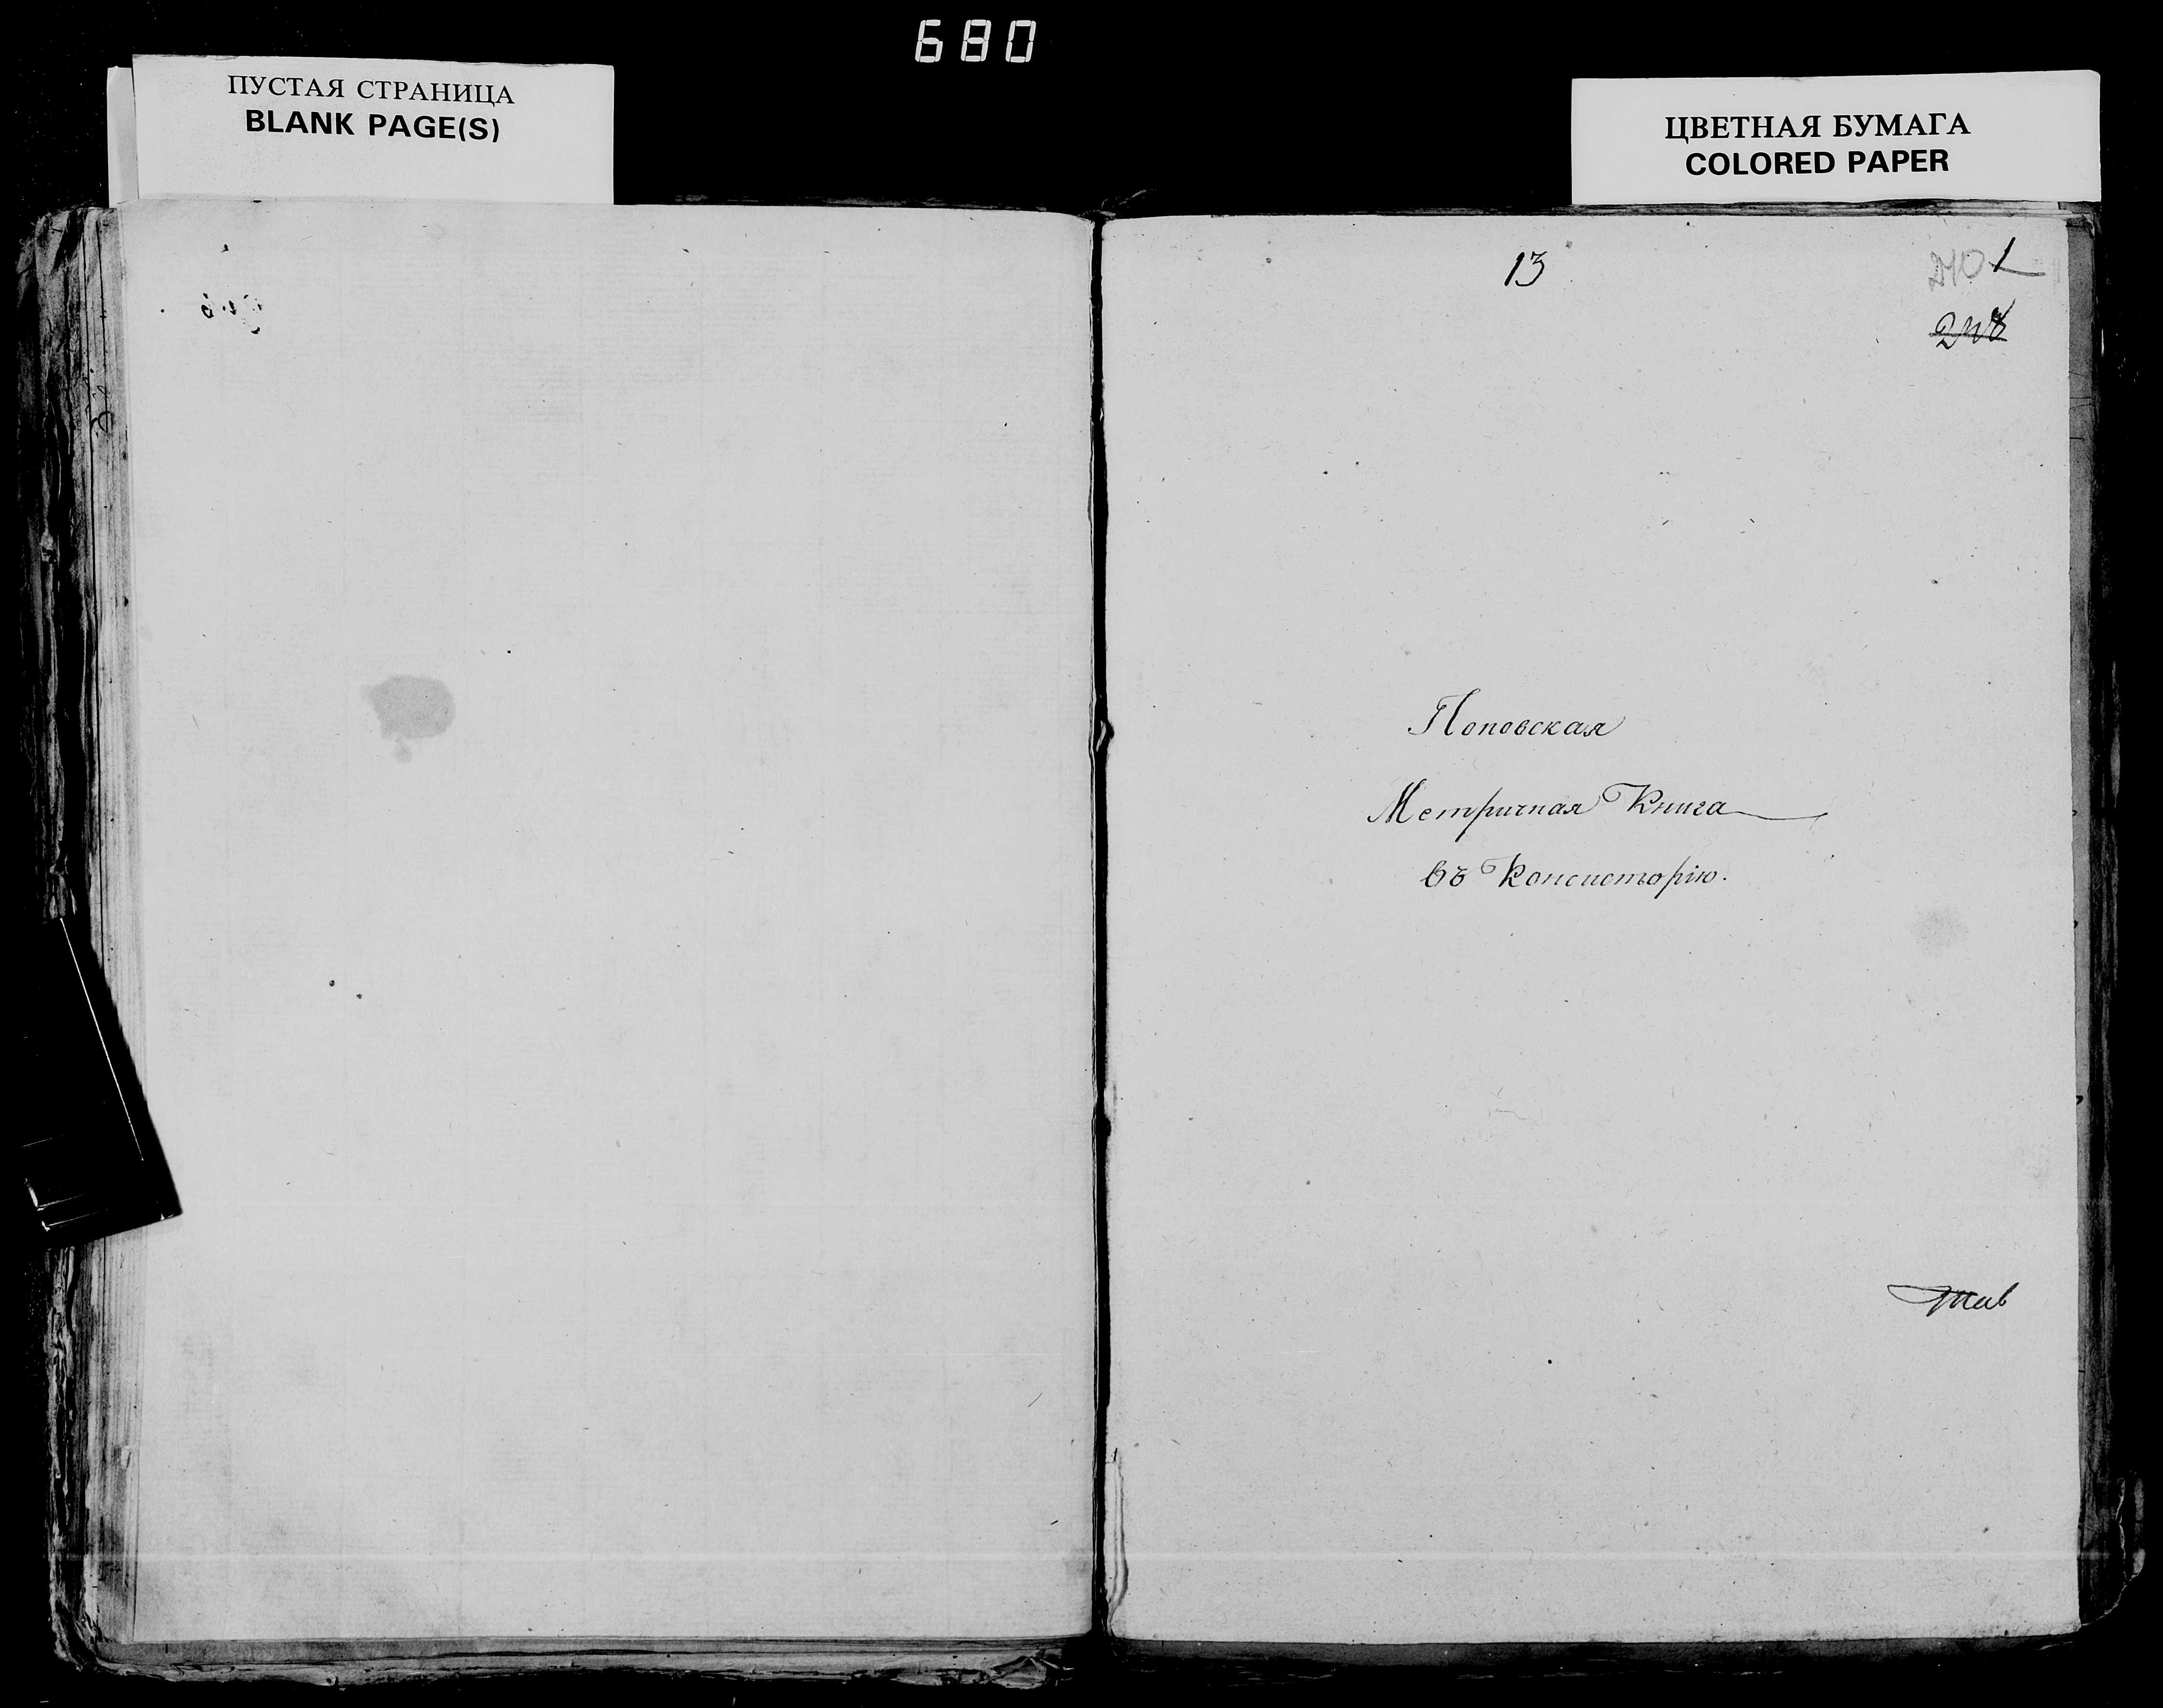 680
ПУСТАЯ СТРАНИЦА
BLANK PAGE(S)
ЦВЕТНАЯ БУМАГА
COLORED PAPER
13
1
Поповская
Метричная Книга
въ Консисторію.